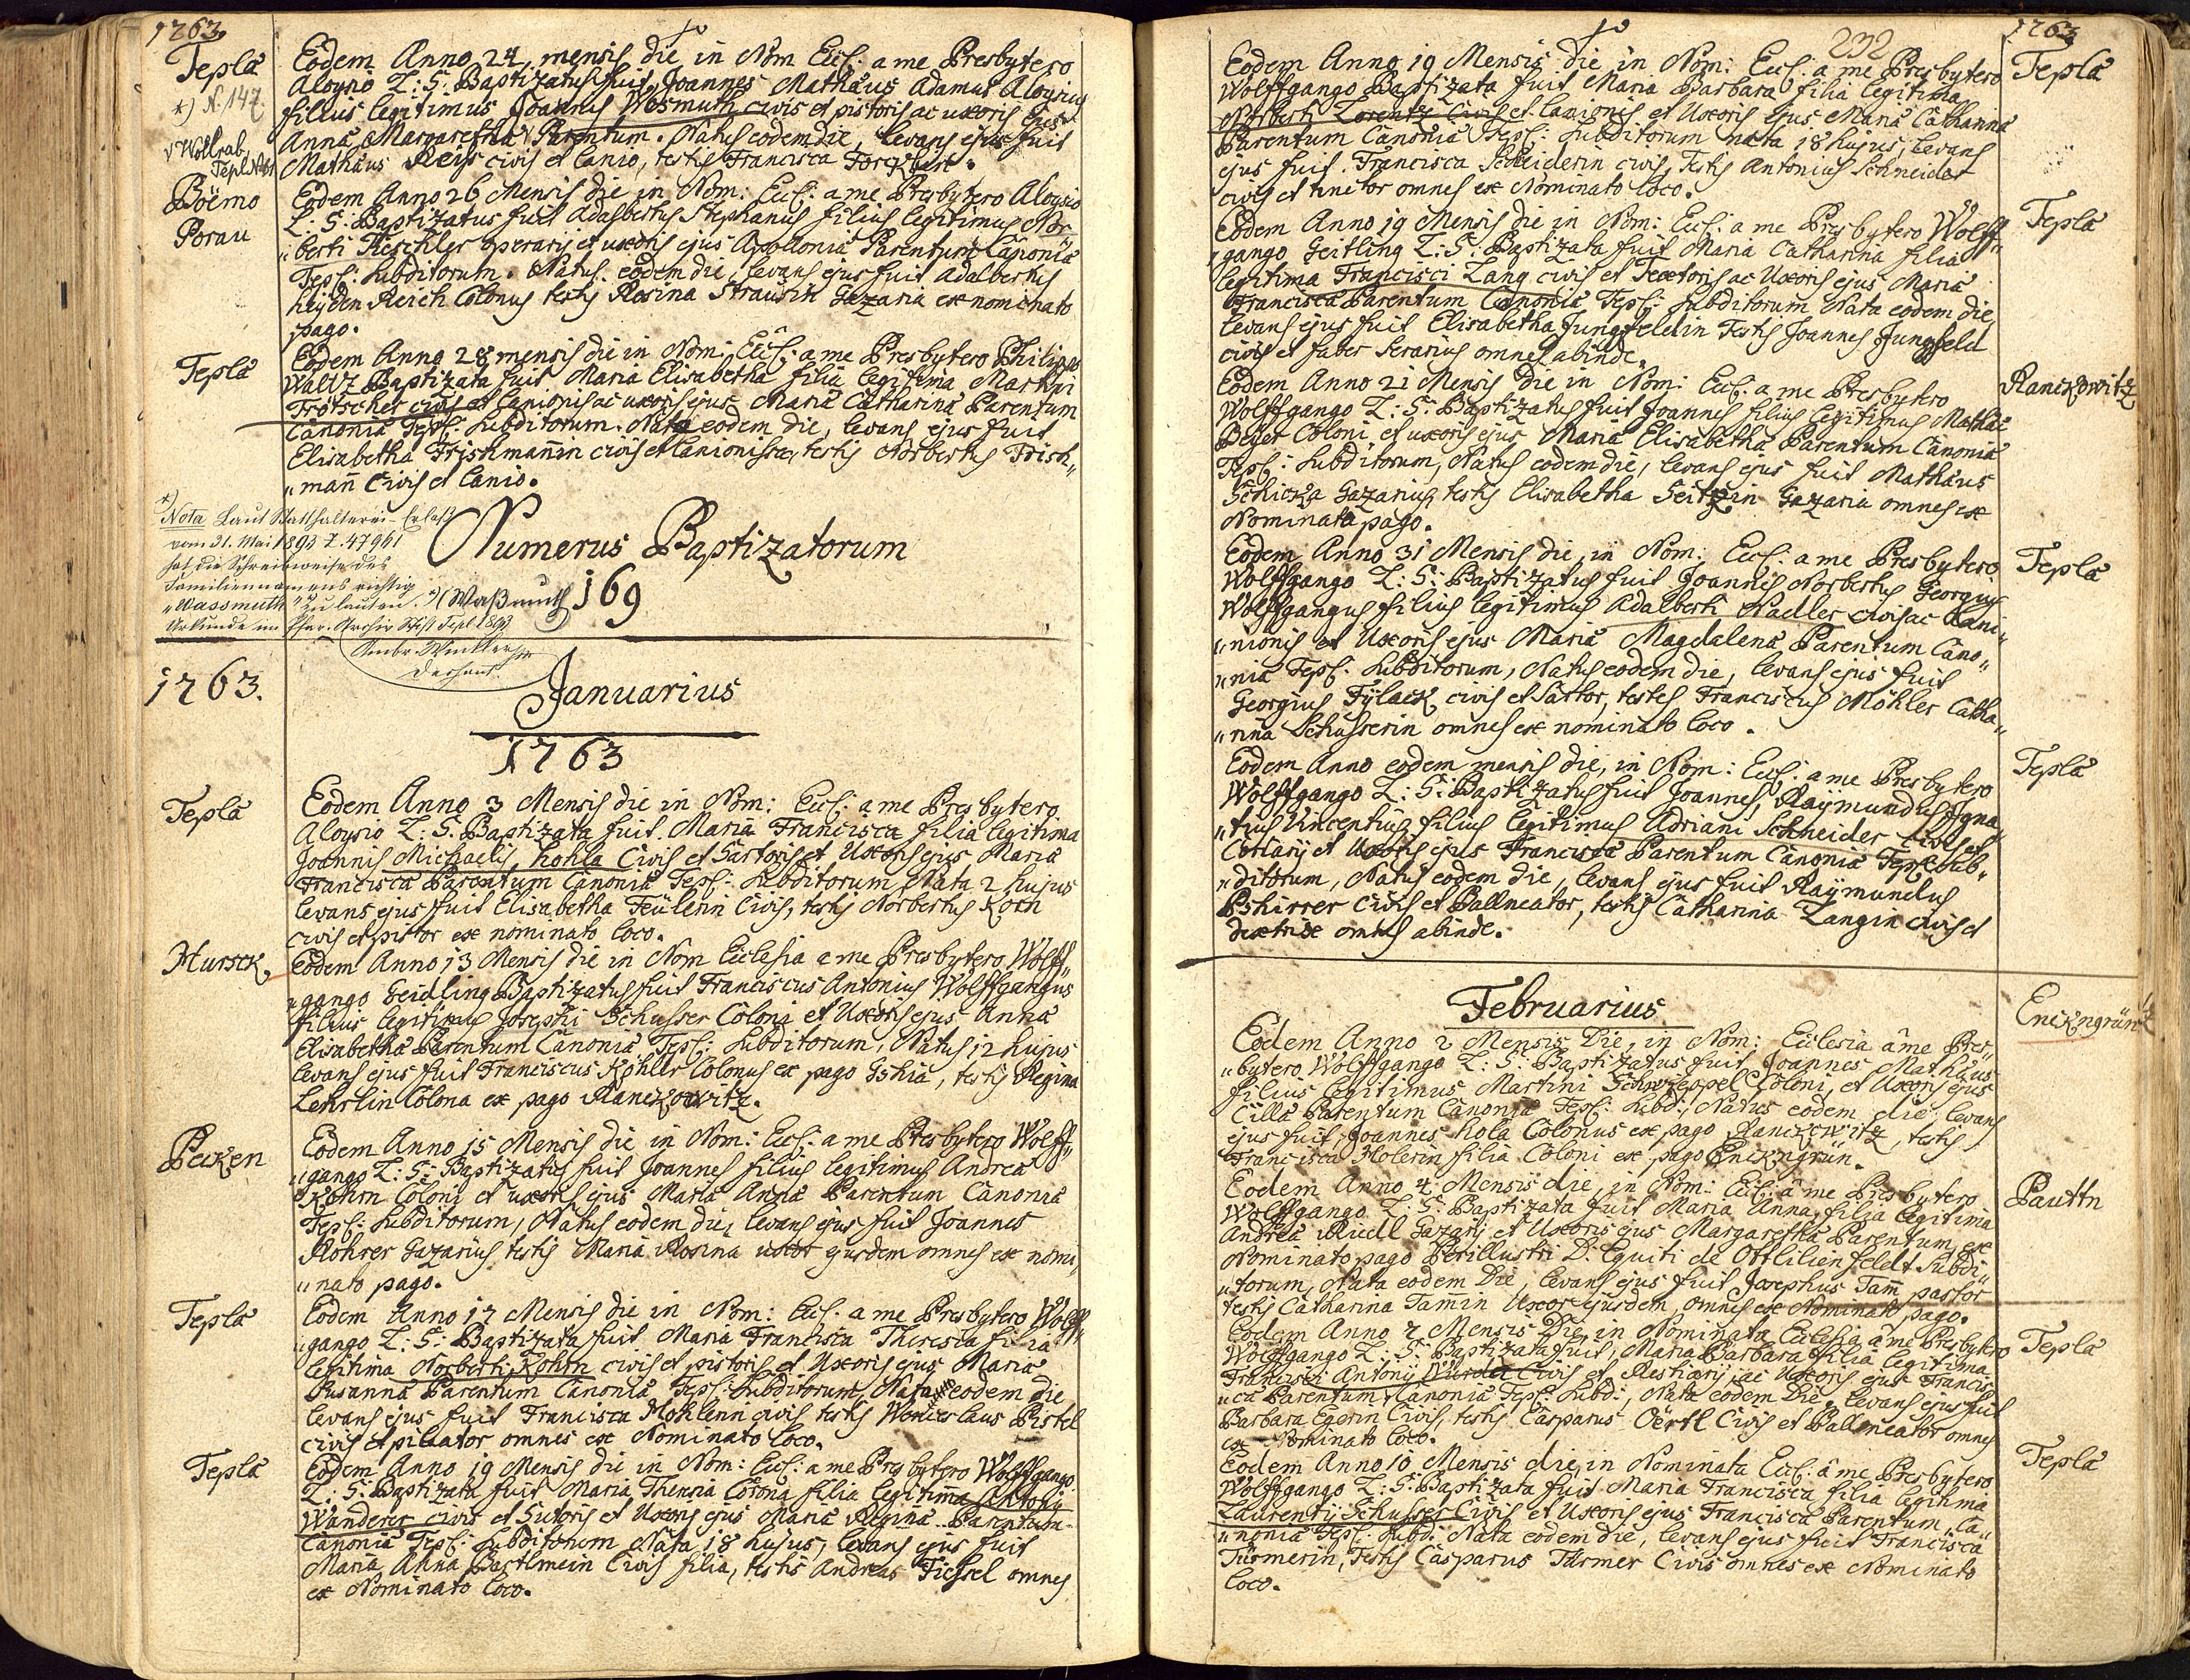 1763
Tepla
*) N. 147.
√ Wollrab
Tepl N 31
Eodem Anno 24 mensis die in Nom Eccl: a me Presbytero
Aloysio L: S: Baptizatus fuit Joannes Mathäus Adamus Aloysius
filius legitimus Joannis Wosmuth civis et pistoris ac uxoris ejus
Anna Margaretha √ Parentum. Natus eodem die, levans ejus fuit
Mathäus Reiß civis et Lanio, testis Francisca
Böemo
Porau
Eodem Anno 26 Mensis die in Nom: Eccl: a me Presbytero Aloysio
L: S: Baptizatus fuit Adalbertus Stephanus filius legitimus Nor
„berti Fieschler operarij et uxoris ejus Apollonia Parentum Canonia
Tepl: Subditorum. Natus eodem die, levans ejus fuit Adalbertus
Heyden Reich Colonus testis Rosina Strausin Gazaria ex nominato
pago.
Tepla
Eodem Anno 28 mensis die in Nom: Eccl: a me Presbytero Philippo
Waltz Baptizata fuit Maria Elisabetha filia legitima Martini
Trötscher civis et Lanionis ac uxoris ejus Maria Catharina Parentum
Canonia Tepl: Subditorum. Nata eodem die, levans ejus fuit
Elisabetha Frischmañin civis et Lanionissa, testis Norbertus Frisch„
„mañ Civis et Lanio.
*)
Nota Laut Statthalterei-Erlaß
vom 31. Mai 1893 Z. 47961
hat die Schreibweise des
Familiennamens richtig
„Wassmuth" zu lauten. (Waßmuth)
Urkunde im Pfar. Archiv Stift Tepl 1893
Ambr. Winkler
Dechant.
Numerus Baptizatorum
169
1763.
Januarius
1763
Tepla
Eodem Anno 3 Mensis die in Nom: Eccl: a me Presbytero
Aloysio L: S. Baptizata fuit Maria Francisca filia legitima
Joannis Michaelis Kohla Civis et Sartoris et Uxoris ejus Maria
Francisca Parentum Canonia Tepl: Subditorum Nata 2 hujus
levans ejus fuit Elisabetha Feülerin Civis, testis Norbertus Koch
civis et pistor ex nominato loco.
Hursck
Eodem Anno 13 Mensis die in Nom Ecclesia a me Presbytero Wolff„
„gango Geidling Baptizatus fuit Franciscus Antonius Wolffgangus
filius legitimus Josephi Schusser Coloni et Uxoris ejus Anna
Elisabetha Parentum Canonia Tepl: Subditorum, Natus 12 hujus
levans ejus fuit Franciscus Köhler Colonus ex pago Gshia, testis Regina
Lehrlin Colona ex pago Ranckowitz.
Pecken
Eodem Anno 15 Mensis die in Nom: Eccl: a me Presbytero Wolff„
„gango L: S: Baptizatus fuit Joannes filius legitimus Andrea
Röhrn Coloni et uxoris ejus Maria Anna Parentum Canonia
Tepl: Subditorum, Natus eodem die, levans ejus fuit Joannes
Rohrer Gazarius testis Maria Rosina uxor ejusdem omnes ex nomi„
„nato pago.
Tepla
Eodem Anno 17 Mensis die in Nom: Eccl: a me Presbytero Wolff„
„gango L: S: Baptizata fuit Maria Francisca Theresia filia
legitima Norberti Rohm civis et pistoris et Uxoris ejus Maria
Susanna Parentum Canonia Tepl: Subditorum, Nata eodem die
levans ejus fuit Francisca Mohlerin civis testis Wenceslaus Pistel
civis et pileator omnes ex Nominato loco.
Tepla
Eodem Anno 19 Mensis die in Nom: Eccl: a me Presbytero Wolffgango
L: S: Baptizata fuit Maria Theresia Corona filia legitima Antonij
Wanderer civis et Sutoris et Uxoris ejus Maria Regina Parentum
Canonia Tepl: Subditorum Nata 18 hujus, levans ejus fuit
Maria Anna Bartlmein Civis filia, testis Andreas Fiessel omnes
ex Nominato loco.
232
1763
Tepla
Eodem Anno 19 Mensis die in Nom: Eccl: a me Presbytero
Wolffgango Baptizata fuit Maria Barbara filia legitima
Norberti Lorentz Civis et Lanionis et Uxoris ejus Maria Catharina
Parentum Canonia Tepl: Subditorum nata 18 hujus, levans
ejus fuit Francisca Schneiderin civis, Testis Antonius Schneider
civis et tinctor omnes ex Nominato loco.
Tepla
Eodem Anno 19 Mensis die in Nom: Eccl: a me Presbytero Wolff„
„gango Geitling L: S: Baptizata fuit Maria Catharina filia
legitima Francisci Lang civis et Textoris ac Uxoris ejus Maria
Francisca Parentum Canonia Tepl: Subditorum Nata eodem die,
levans ejus fuit Elisabetha Jungfeldin Testis Joannes Jungfeld
civis et faber serarius omnes abinde.
Ranckowitz
Eodem Anno 21 Mensis die in Nom: Eccl: a me Presbytero
Wolffgango L: S: Baptizatus fuit Joannes filius legitimus Mathäi
Beÿer Coloni, et uxoris ejus Maria Elisabetha Parentum Canonia
Tepl: Subditorum, Natus eodem die, levans ejus fuit Mathäus
Schicka Gazarius, testis Elisabetha Seitzin Gazaria omnes ex
Nominato pago.
Tepla
Eodem Anno 31 Mensis die, in Nom; Eccl: a me Presbytero
Wolffgango L: S: Baptizatus fuit Joannes Norbertus Georgius
Wolffgangus filius legitimus Adalberti Nadler civis ac Lani„
„nionis et Uxoris ejus Maria Magdalena Parentum Cano„
„nia Tepl: Subditorum, Natus eodem die, levans ejus fuit
Georgius Tÿlack civis et Sartor, testes Franciscus Möhler Catha„
„rina Schusserin omnes ex nominato loco.
Tepla
Eodem Anno eodem mensis die, in Nom: Eccl: a me Presbytero
Wolffgango L: S: Baptizatus fuit Joannes Raÿmundus Igna„
„tius Vincentius filius legitimus Adriani Schneider civis et
Coriarij et Uxoris ejus Francisca Parentum Canonia Tepl: Sub„
„ditorum, Natus eodem die, levans ejus fuit Raÿmundus
Pshirrer Civis et Ballneator, testis Catharina Langin civis et
textrix omnes abinde.
Februarius
Enckngrün
Eodem Anno 2 Mensis Die, in Nom: Ecclesia â me Pres„
„bytero Wolffgango L: S: Baptizatus fuit Joannes Mathäus
filius legitimus Martini Schwzeppel Coloni, et Uxoris ejus
Cilla Parentum Canonia Tepl: Subd:, Natus eodem die levans
ejus fuit Joannes Kola Colonus ex pago Ranckowitz, testis
Francisca Holerin filia Coloni ex pago Enckngrün.
Pauttn
Eodem Anno 4 Mensis die, in Nom: Eccl: â me Presbytero
Wolffgango L: S: Baptizata fuit Maria Anna filia legitima
Andrea Riedl Gazarij et Uxoris ejus Margaretha Parentum ex
Nominato pago Perillustri D: Equiti de Ottlilienfeldt Subdi„
„torum, Nata eodem Die, levans ejus fuit Josephus Tam̃ pastor
testis Catharina Tam̃in Uxor ejusdem, omnes ex Nominato pago.
Tepla
Eodem Anno 7 Mensis Die in Nominata Ecclesia â me Presbytero
Wolffgango L: S: Baptizata fuit, Maria Barbara filia legitima
Francisci Antonij Würdl Civis et Restiarij, ac Uxoris ejus Francis„
„ca Parentum, Canonia Tepl: Subd:, Nata eodem Die, levans ejus fuit
Barbara Egerin Civis, testis Casparus Oërtl Civis et Ballneator omnes
ex Nominato loco.
Tepla
Eodem Anno 10 Mensis die, in Nominata Eccl: â me Presbytero
Wolffgango L: S: Baptizata fuit Maria Francisca filia legitima
Laurentij Schusser Civis et Uxoris ejus Francisca Parentum Ca„
„nonia Tepl: Subd: Nata eodem die, levans ejus fuit Francisca
Türmerin, Testis Casparus Türmer Civis omnes ex Nominato
loco.